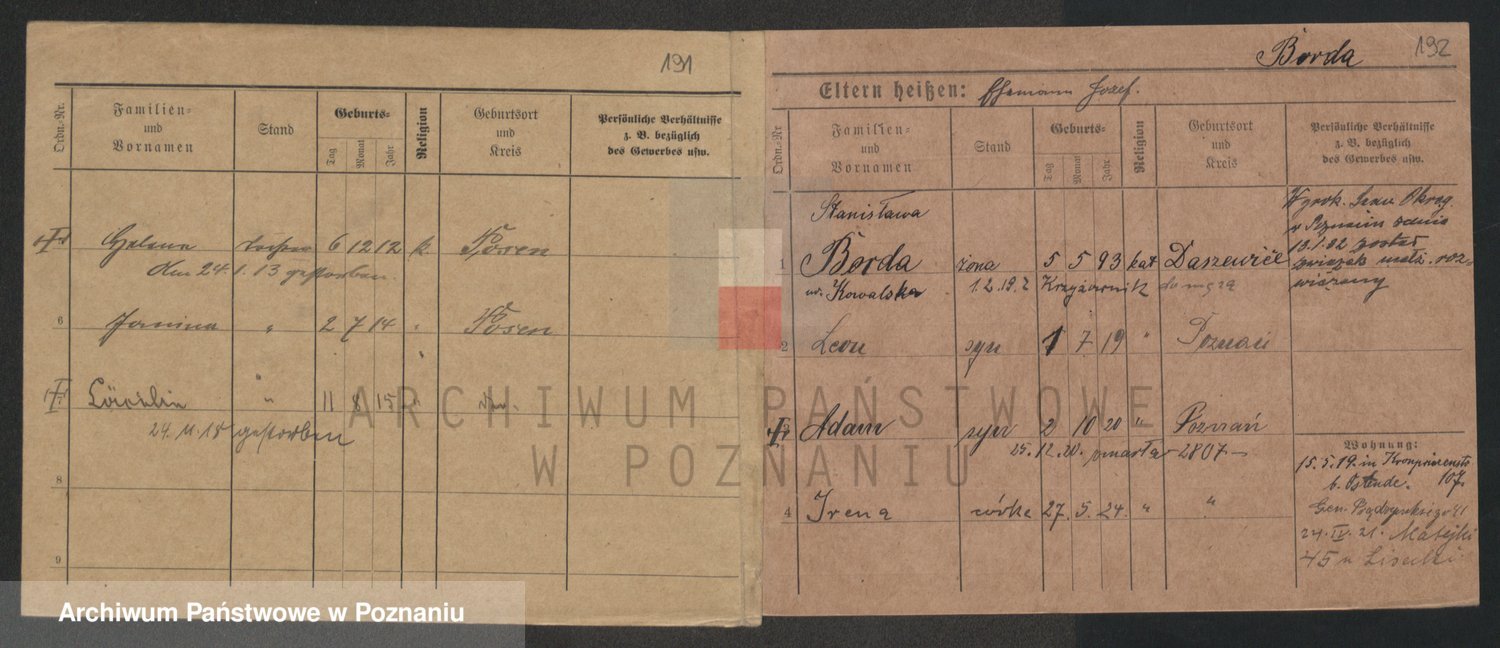 191
Ordn.-Nr.
Familien- und Vornamen
Stand
Geburts-
Tag
Monat
Jahr
Religion
Geburtsort und Kreis
Persönliche Verhältnisse z. B. bezüglich des Gewerbes usw.
Helena 6 12 12 k. Posen
Am 24. 1. 13 gestorben.
6 Janina " 2 7 14 " Posen
7 " 11 8 15 "
24. 11. 18 gestorben
8
9
192
Borda
Eltern heißen: Ehemann Jozef.
Ordn.-Nr
Familien- und Vornamen
Stand
Geburts-
Tag
Monat
Jahr
Religion
Geburtsort und Kreis
Persönliche Verhältnisse z. B. bezüglich des Gewerbes usw.
Stanisława
1 Borda żona 5 5 93 kat Daszewice
Kowalska 1. 2. 19. 2 do męża
Wyrok. Sądu Okręg.
w Poznaniu z dnia
13.1.02 został
związek małż. roz-
wiązany
2 Leon syn 1 7 19 " Poznań
3 Adam syn 2 10 20 " Poznań
25. 12. 20. zmarła - 2807 -
4 Irena córka 27. 5. 24. " "
Wohnung:
15. 5. 19. in Kronprinzenstr
107.
b. Ostende.
24. IV. 21. Matejki
45 u
ARCHIWUM PAŃSTWOWE
W POZNANIU
Archiwum Państwowe w Poznaniu